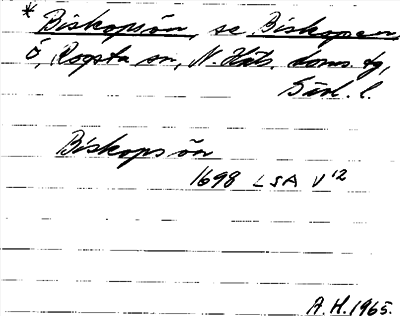 * Biskopsön, se Biskopen,
ö, Rogsta sn, N. Häls. doms. tg,
Gävl. l.
Biskops ön
1698 LSA V 12
A. H. 1965.